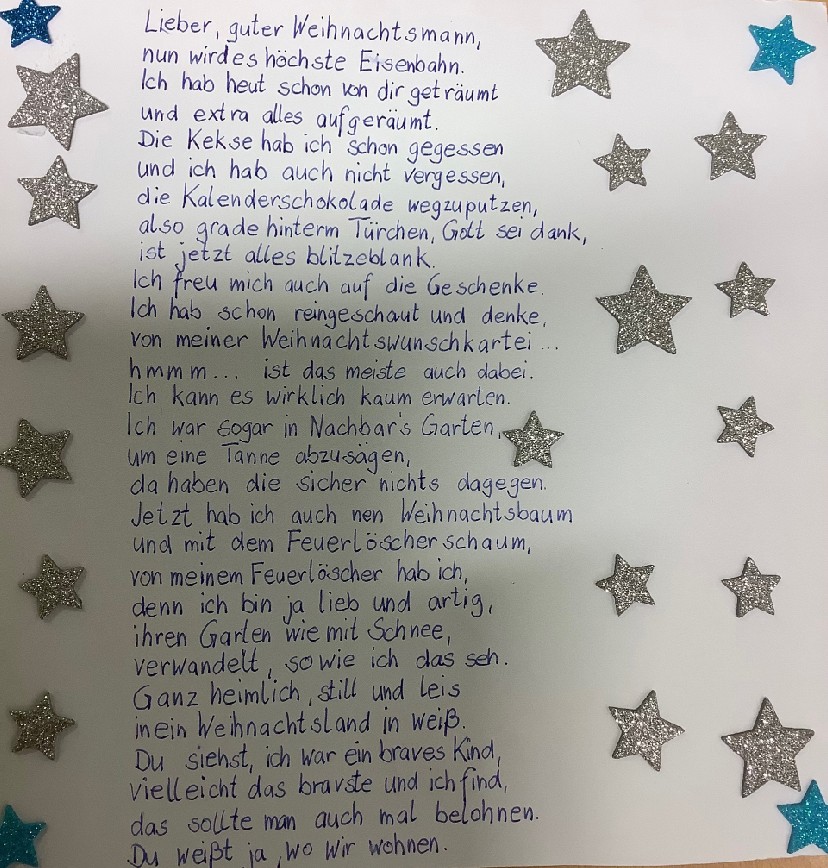 Lieber, guter Weihnachtsmann,
nun wird es höchste Eisenbahn.
Ich hab heut schon von dir geträumt
und extra alles aufgeräumt.
Die Kekse hab ich schon gegessen
und ich hab auch nicht vergessen,
die Kalenderschokolade wegzuputzen,
also grade hinterm Türchen, Gott sei dank,
ist jetzt alles blitzeblank.
Ich freu mich auch auf die Geschenke.
Ich hab schon reingeschaut und denke,
von meiner Weihnachtswunschkartei ...
hmmm... ist das meiste auch dabei.
Ich kann es wirklich kaum erwarten.
Ich war sogar in Nachbar's Garten,
um eine Tanne abzusägen,
da haben die sicher nichts dagegen.
Jetzt hab ich auch nen Weihnachtsbaum
und mit dem Feuerlöscherschaum,
von meinem Feuerlöscher hab ich,
denn ich bin ja lieb und artig,
ihren Garten wie mit Schnee,
verwandelt, so wie ich das seh.
Ganz heimlich, still und leis
in ein Weihnachtsland in weiß.
Du siehst, ich war ein braves Kind,
vielleicht das bravste und ich find,
das sollte man auch mal belohnen.
Du weißt ja, wo wir wohnen.